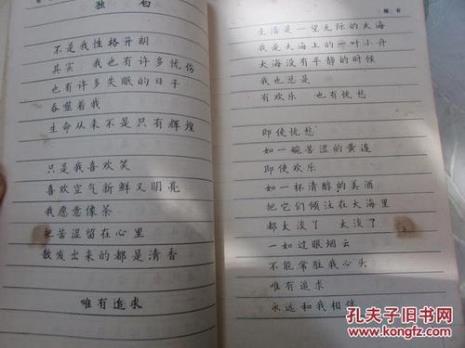 独 白
不是我性格开朗
其实 我也有许多忧伤
也有许多失眠的日子
吞噬着我
生命从来不是只有辉煌
只是我喜欢笑
喜欢空气新鲜又明亮
我愿意像茶
把苦涩留在心里
散发出来的都是清香
唯有追求
生活是一望无际的大海
我是大海上的一叶小舟
大海没有平静的时候
我也总是
有欢乐 也有忧愁
即使忧愁
如一碗苦涩的黄连
即使欢乐
如一杯清醇的美酒
把它们倾注在大海里
都太淡了 太淡了
一如过眼烟云
不能常驻我心头
唯有追求
永远和我相
孔夫子旧书网
KONGFZ.COM